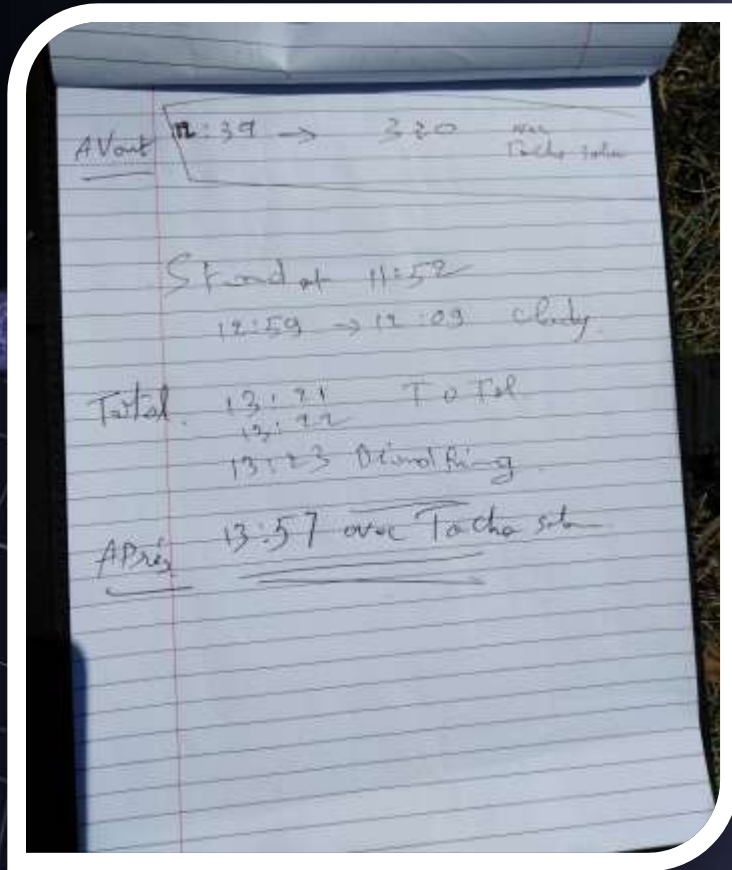 AVant 12:39 → 320 avec Tacho solar
Stand at 11:52
12:59 → 12:09 Cloudy
Total. 13:21 ToTal
13:22
13:23 Diamond Ring
APrès 13:57 avec Tacho